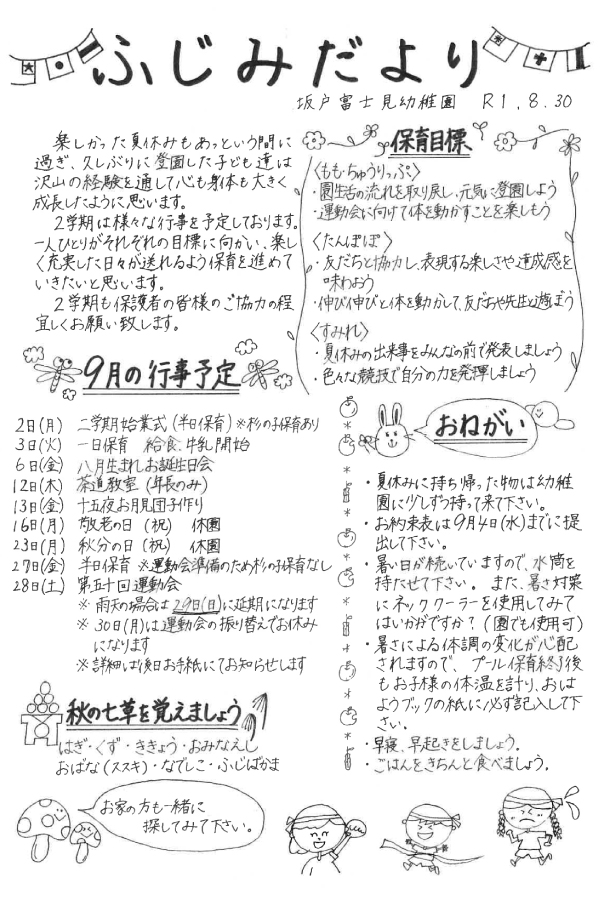 ふじみだより
坂戸富士見幼稚園 R1.8.30
楽しかった夏休みもあっという間に
過ぎ、久しぶりに登園した子ども達は
沢山の経験を通して心も身体も大きく
成長したように思います。
2学期は様々な行事を予定しております。
一人ひとりがそれぞれの目標に向かい、楽し
く充実した日々が送れるよう保育を進めて
いきたいと思います。
2学期も保護者の皆様のご協力の程
宜しくお願い致します。
保育目標
〈もも・ちゅうりっぷ〉
・園生活の流れを取り戻し、元気に登園しよう
・運動会に向けて体を動かすことを楽しもう
〈たんぽぽ〉
・友だちと協力し、表現する楽しさや達成感を
味わおう
・伸び伸びと体を動かして、友だちや先生と遊ぼう
〈すみれ〉
・夏休みの出来事をみんなの前で発表しましょう
・色々な競技で自分の力を発揮しましょう
9月の行事予定
2日(月) 二学期始業式(半日保育)※杉の子保育あり
3日(火) 一日保育 給食、牛乳開始
6日(金) 八月生まれお誕生日会
12日(木) 茶道教室(年長のみ)
13日(金) 十五夜お月見団子作り
16日(月) 敬老の日(祝) 休園
23日(月) 秋分の日(祝) 休園
27日(金) 半日保育 ※運動会準備のため杉の子保育なし
28日(土) 第五十回運動会
※ 雨天の場合は29日(日)に延期になります
※ 30日(月)は運動会の振り替えでお休み
になります
※ 詳細は後日お手紙にてお知らせします
おねがい
・夏休みに持ち帰った物は幼稚
園に少しずつ持って来て下さい。
・お約束表は9月4日(水)までに提
出して下さい。
・暑い日が続いていますので、水筒を
持たせて下さい。また、暑さ対策
にネッククーラーを使用してみて
はいかがですか?(園でも使用可)
・暑さによる体調の変化が心配
されますので、プール保育終了後
もお子様の体温を計り、おは
ようブックの紙に必ず記入して下
さい。
・早寝、早起きをしましょう。
・ごはんをきちんと食べましょう。
秋の七草を覚えましょう
はぎ・くず・ききょう・おみなえし
おばな(ススキ)・なでしこ・ふじばかま
お家の方も一緒に
探してみて下さい。